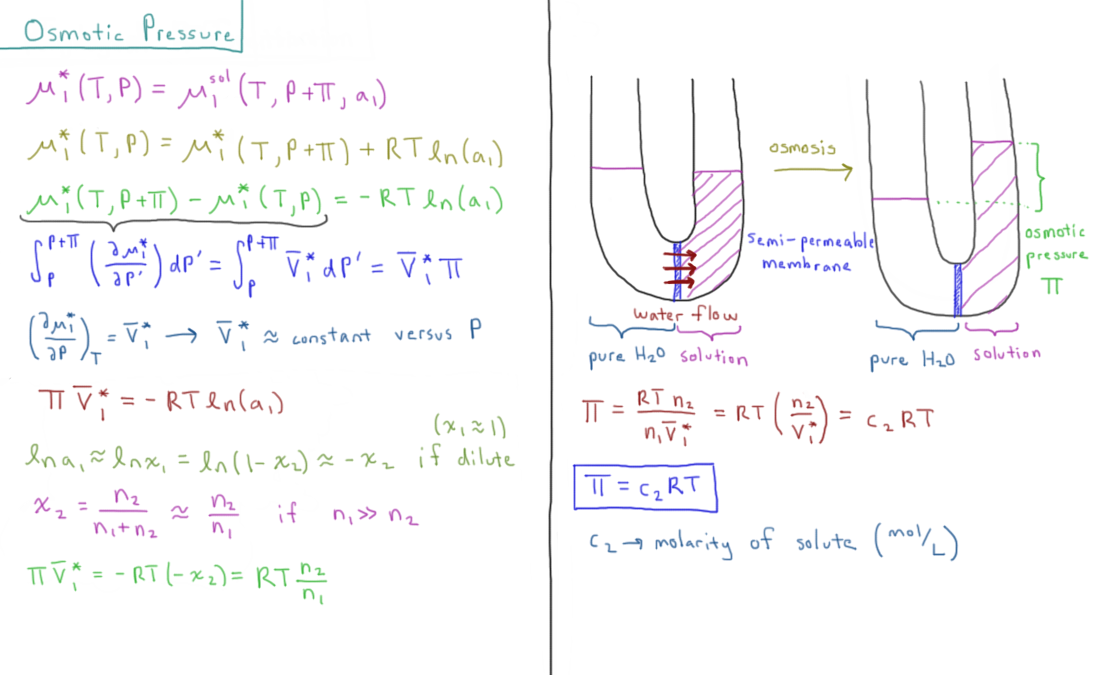 Osmotic Pressure
μ₁*(T, P) = μ₁ˢᵒˡ(T, P+Π, a₁)
μ₁*(T, P) = μ₁*(T, P+Π) + RT ln(a₁)
μ₁*(T, P+Π) − μ₁*(T, P) = −RT ln(a₁)
∫_P^{P+Π} (∂μ₁*/∂P') dP' = ∫_P^{P+Π} V̄₁* dP' = V̄₁* Π
(∂μ₁*/∂P)_T = V̄₁* → V̄₁* ≈ constant versus P
Π V̄₁* = −RT ln(a₁)
(x₁ ≈ 1)
ln a₁ ≈ ln x₁ = ln(1−x₂) ≈ −x₂ if dilute
x₂ = n₂/(n₁+n₂) ≈ n₂/n₁ if n₁ ≫ n₂
Π V̄₁* = −RT(−x₂) = RT n₂/n₁
osmosis
semi-permeable
membrane
water flow
pure H₂O solution
osmotic
pressure
Π
pure H₂O solution
Π = RT n₂/(n₁V̄₁*) = RT (n₂/V₁*) = c₂RT
Π = c₂RT
c₂ → molarity of solute (mol/L)